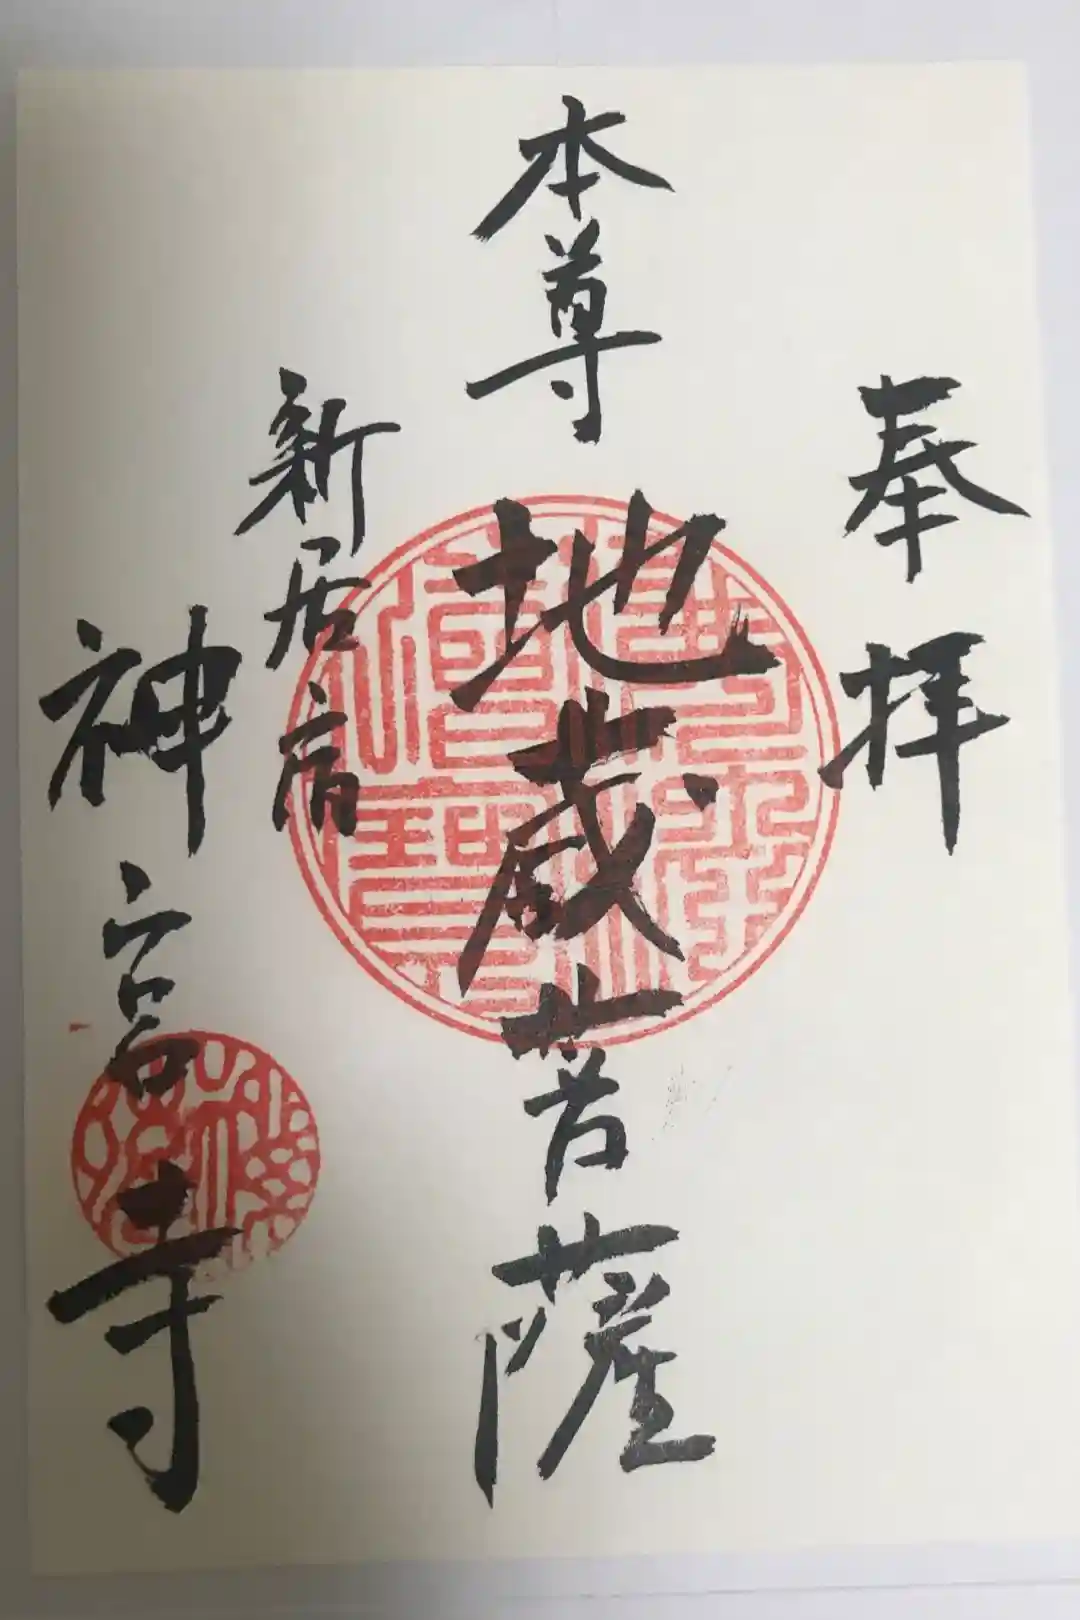 奉拝
本尊
地蔵菩薩
新居
神宮寺